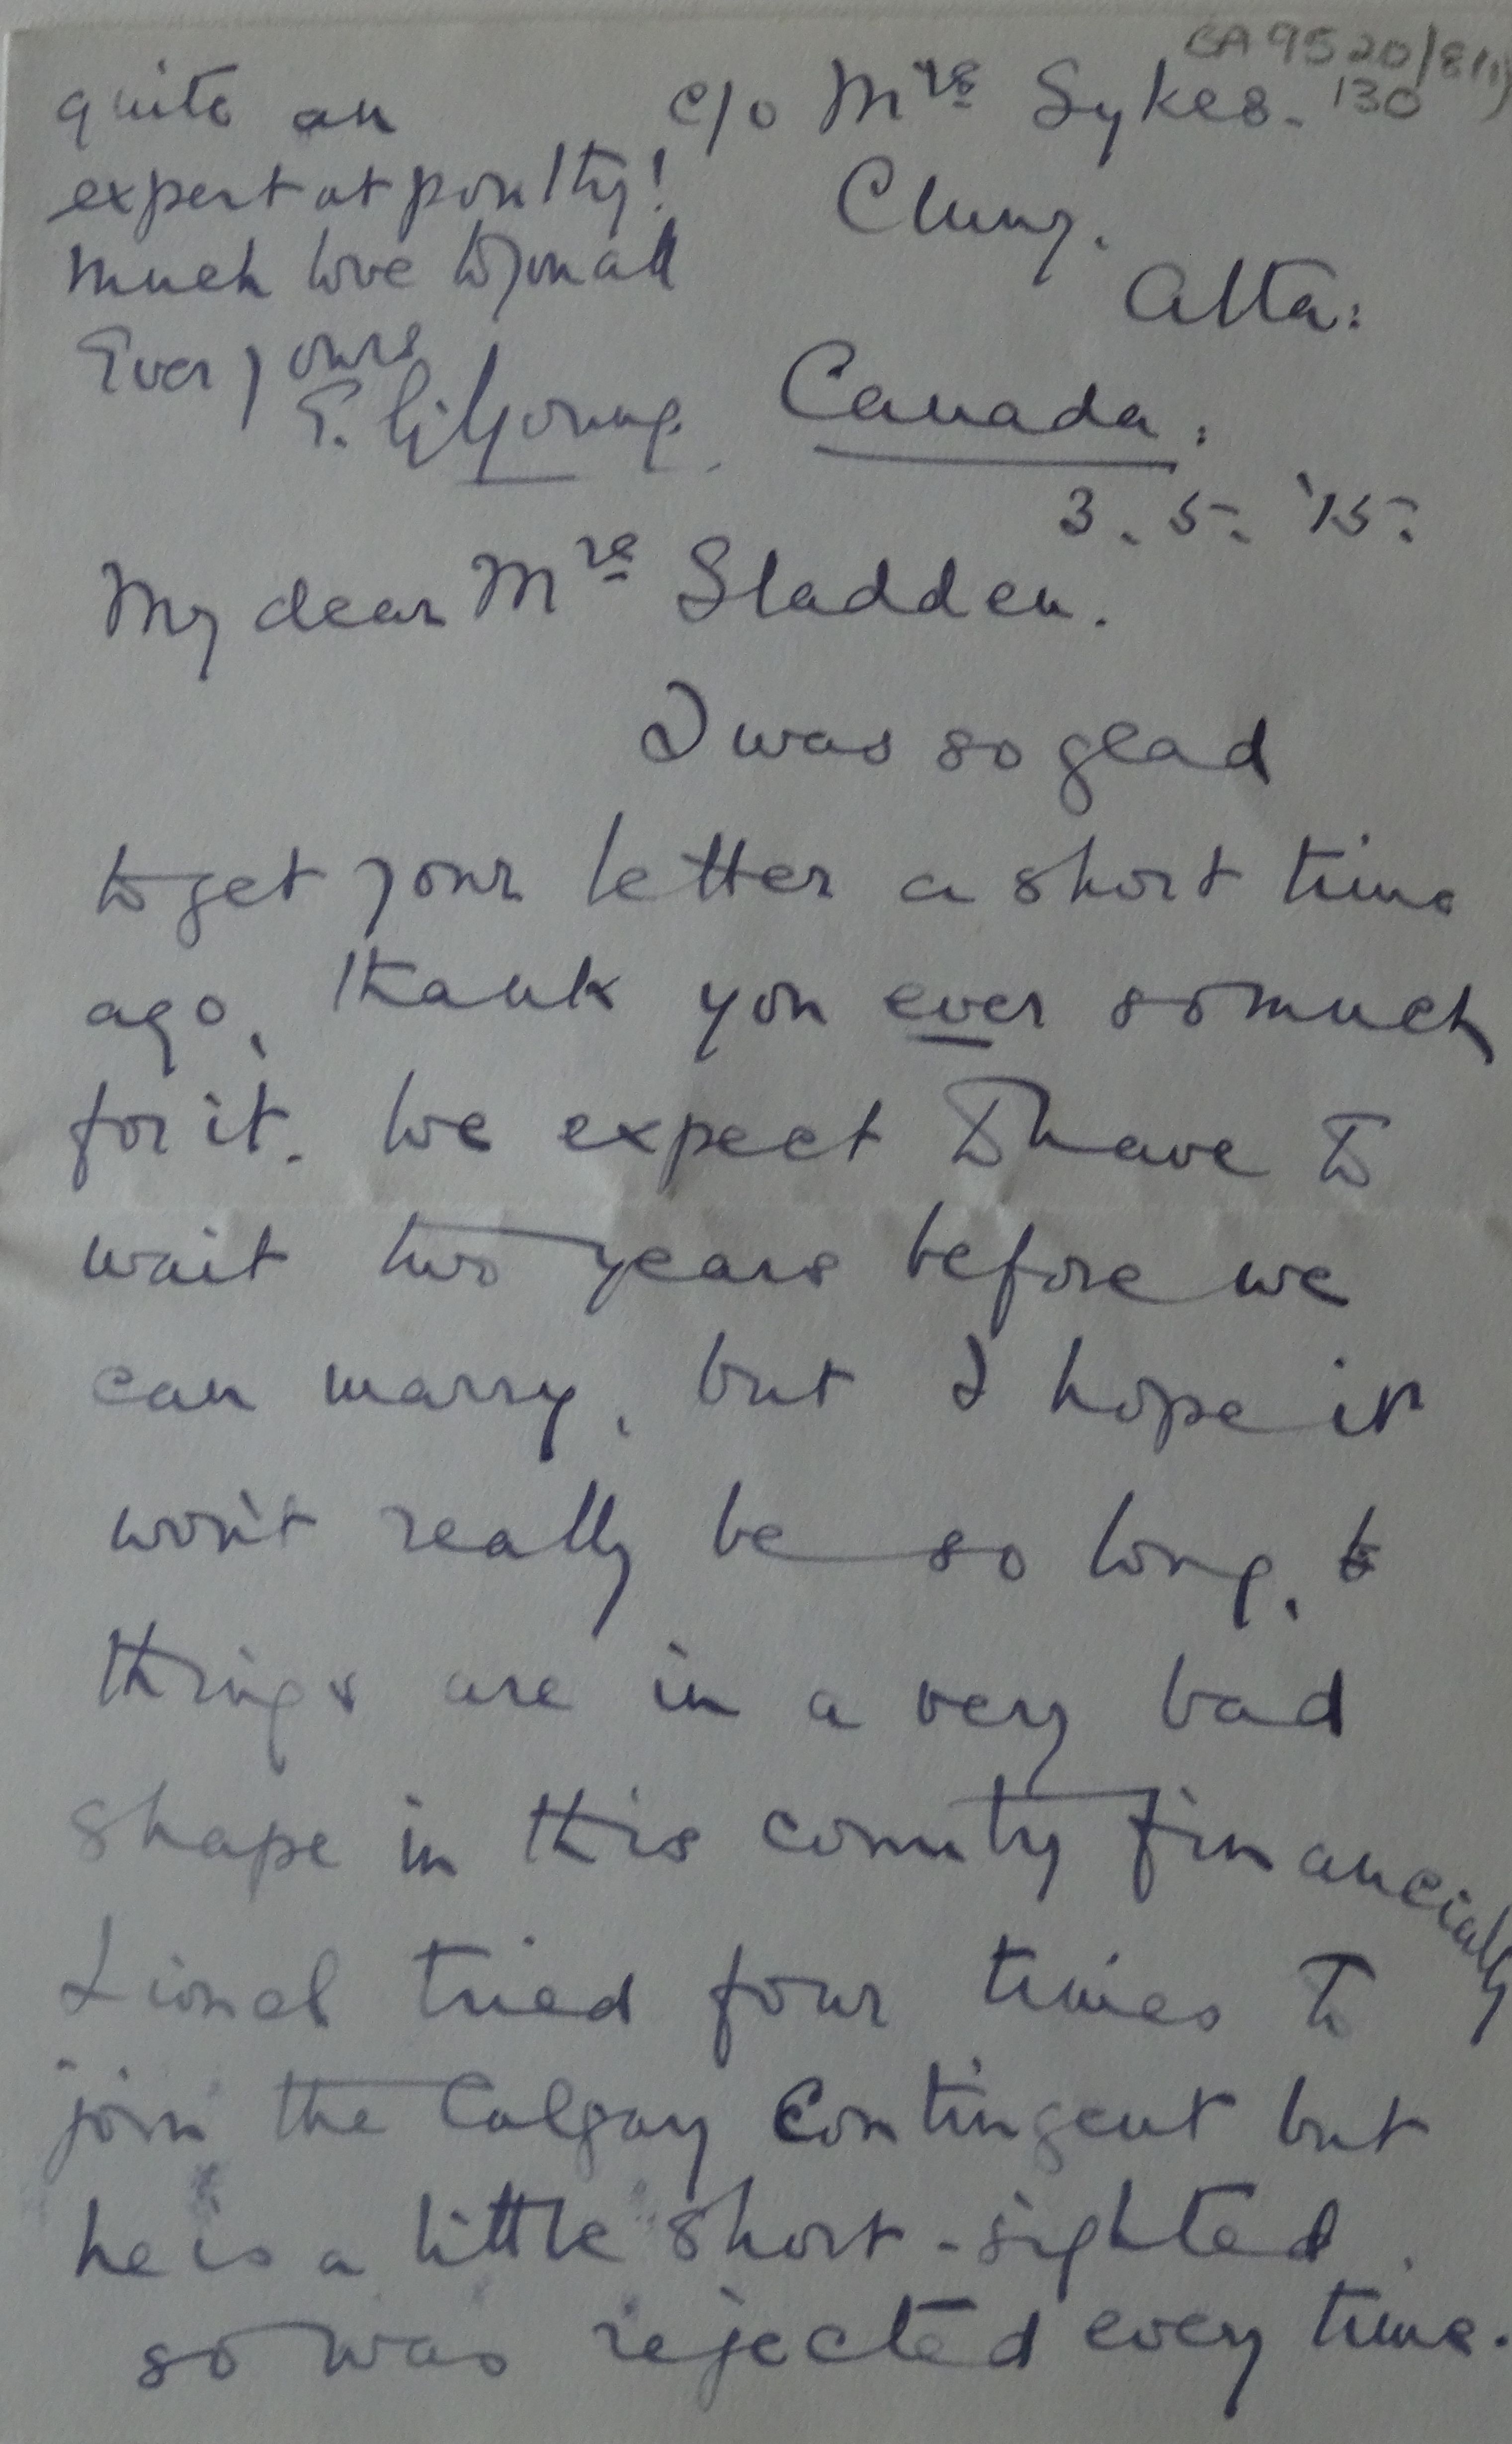 CA 9520/8(1)
130
c/o Mrs Sykes.
Cluny.
Alta:
Canada:
3. 5. '15.
My dear Mrs Sladden.
I was so glad
to get your letter a short time
ago, thank you ever so much
for it. We expect to have to
wait two years before we
can marry, but I hope it
won't really be so long,
things are in a very bad
shape in this country financially
Lionel tried four times to
join the Calgary Contingent but
he is a little short-sighted.
so was rejected every time.
quite an
expert at poultry!
Much love to you all
Ever yours